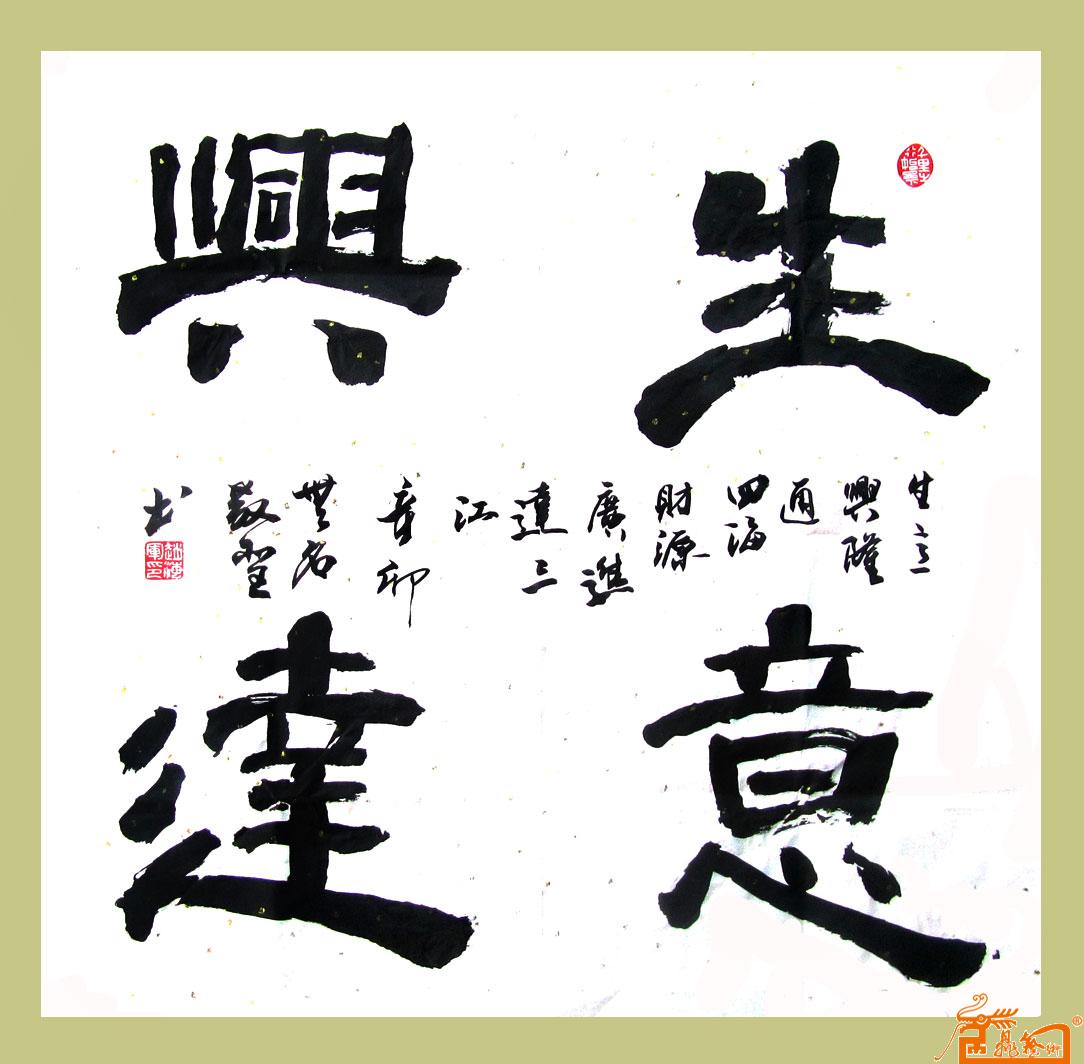 生意
興達
生意
興隆
通
四海
財源
廣進
達三
江
辛卯
無名
书